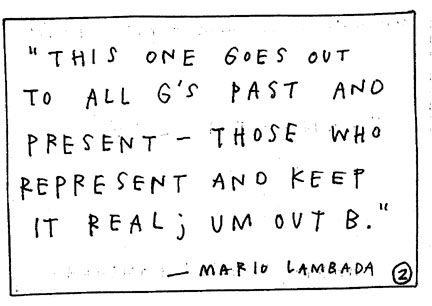 "THIS ONE GOES OUT
TO ALL G'S PAST AND
PRESENT - THOSE WHO
REPRESENT AND KEEP
IT REAL; UM OUT B."
- MARIO LAMBADA 2